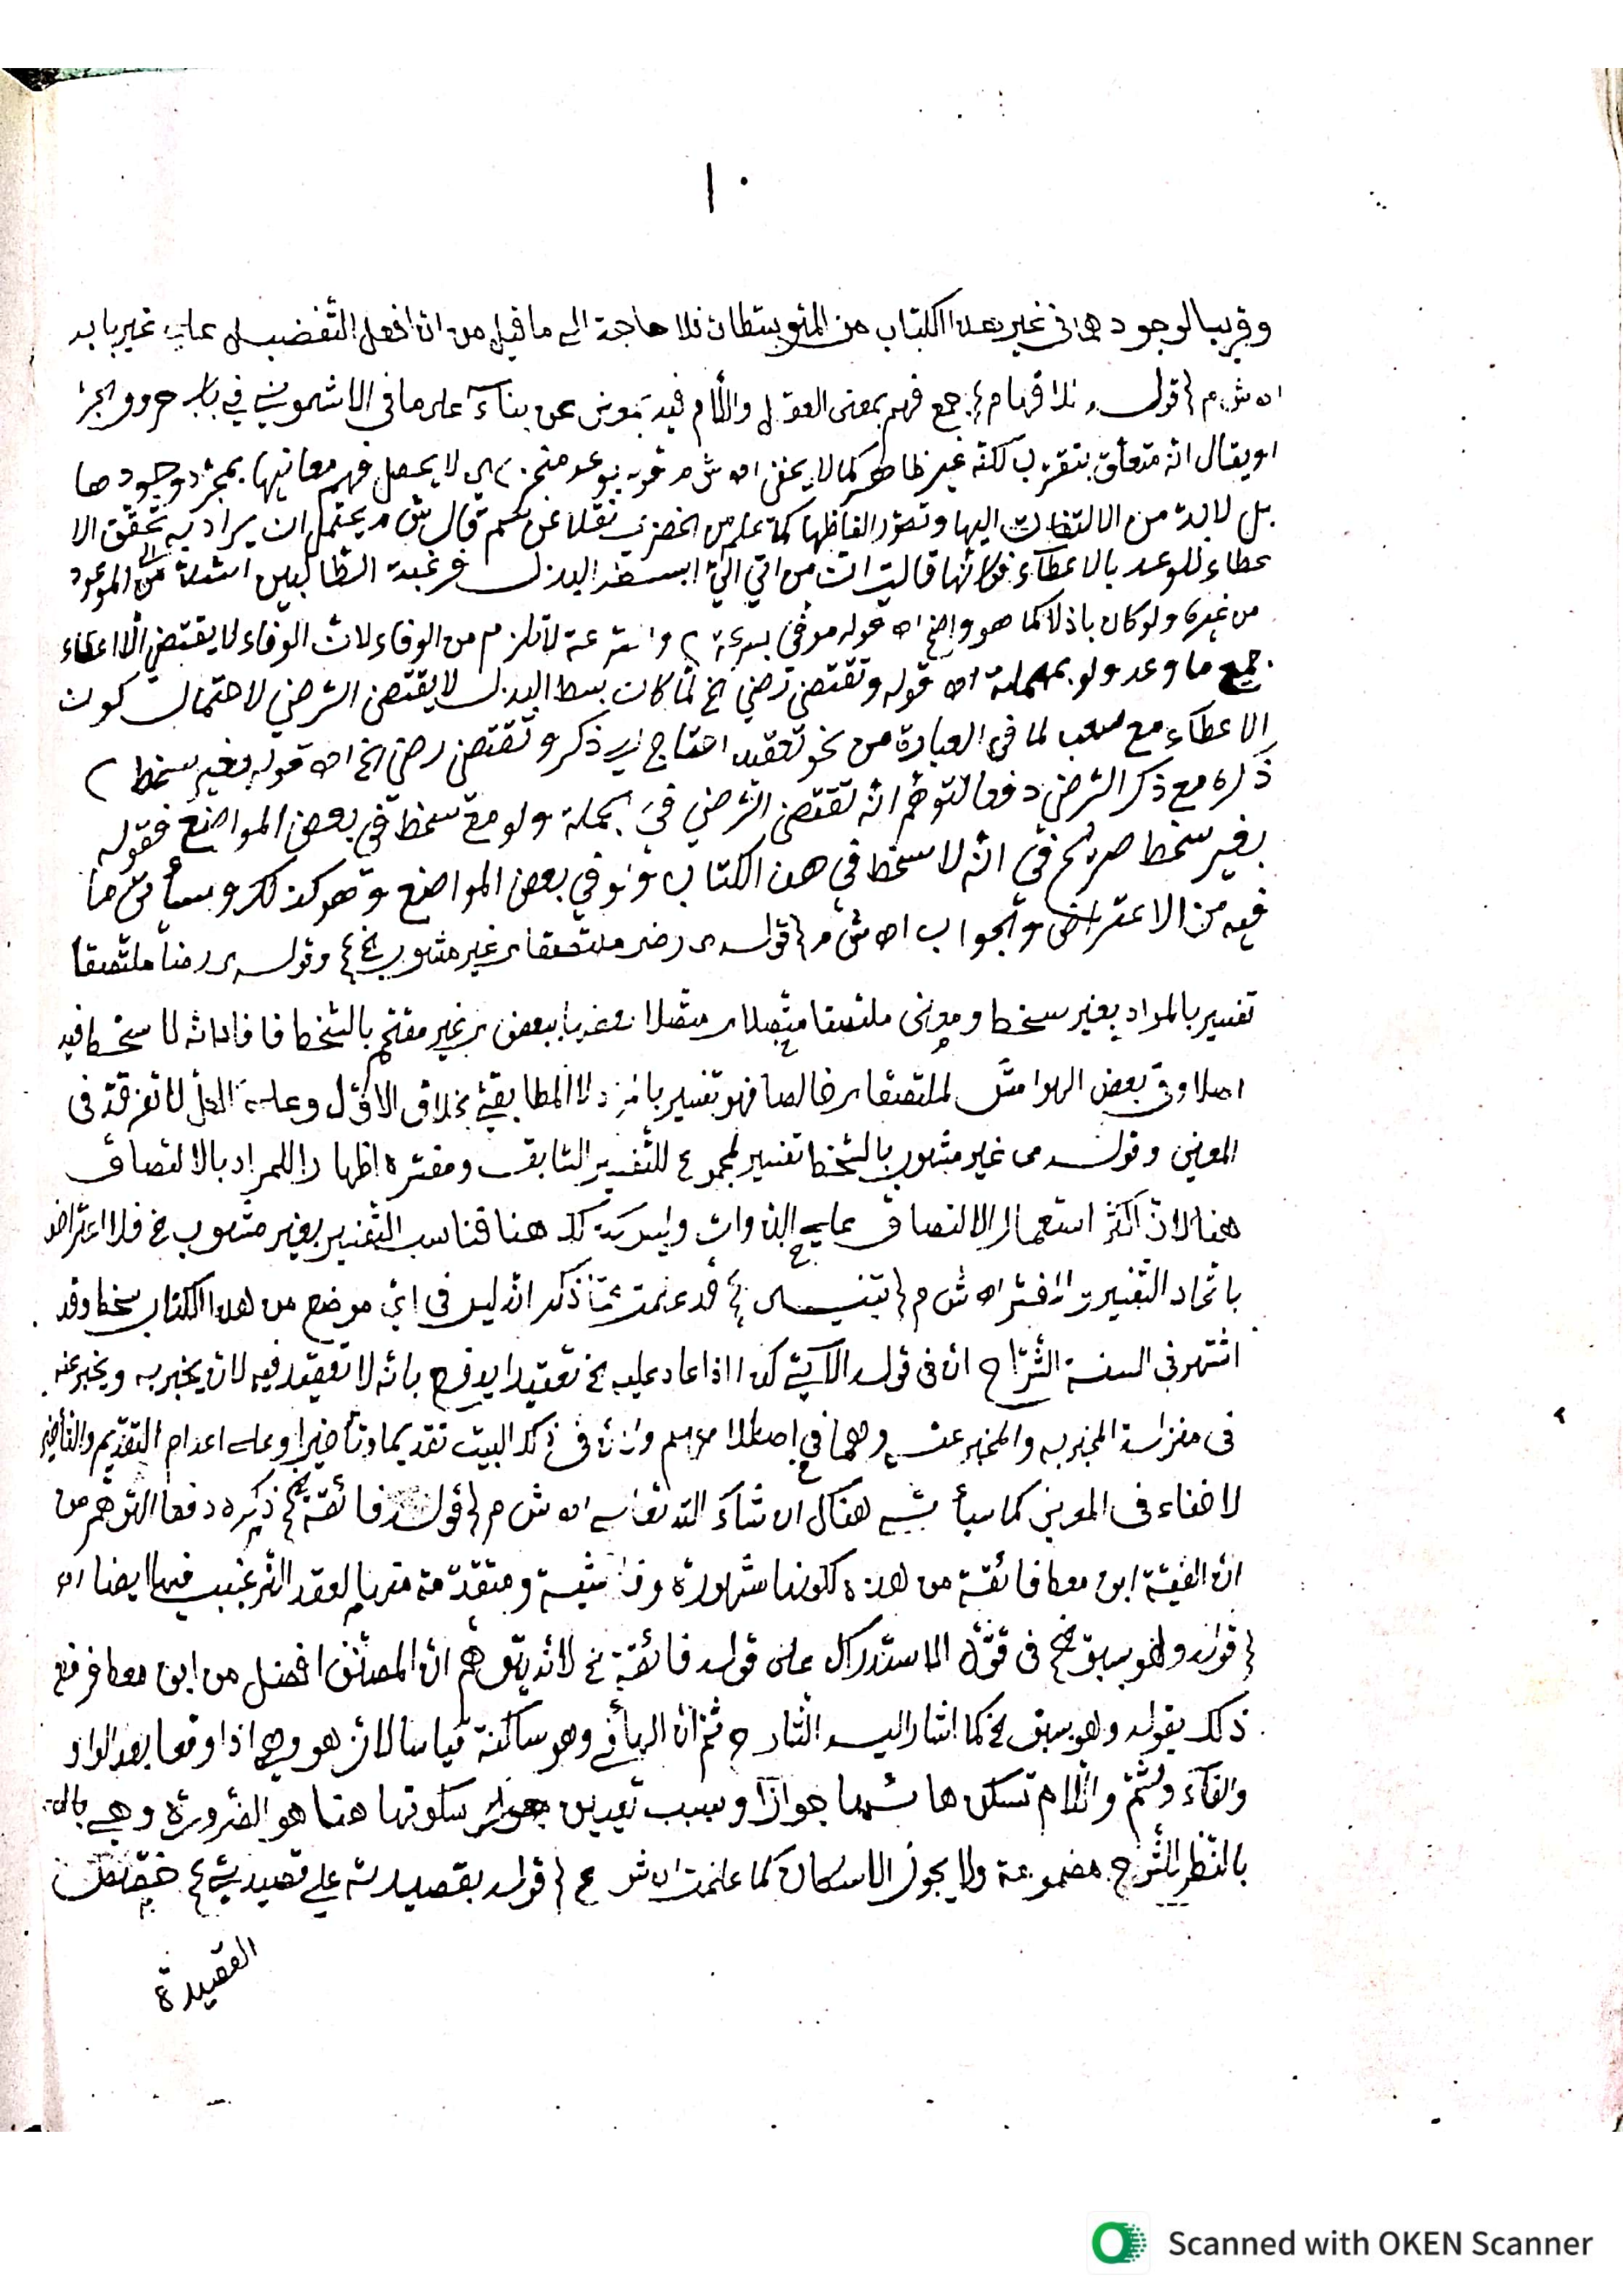 ١٠
وقريب الوجود هما في غير هذا الكتاب من المتوسطات فلا حاجة الى ما قيل من ان افعل التفضيل على غير بابه
اه ش م {قوله للافهام} جمع فهم بمعنى العقل واللام فيه بمعنى عن بناء على ما في الاشموني في باب حروف الجر
او يقال انه متعلق بتقرب لكنه غير ظاهر كما لا يخفى اه ش م قوله بوعد منجز ) اي لا يحصل فهم معانيها بمجرد وجودها
بل لا بد من الالتفات اليها وتصور الفاظها كما علم من الخضري نقلا عن سم قال ش م يحتمل ان يراد به تحقق الا
عطاء للوعد بالاعطاء فكانها قالت ان من اتي الي ابسط البذل فرغبة الطالبين
من غيره ولو كان باذلا كما هو واضح اه قوله موفى بسرعة ) والسرعة لا تلزم من الوفاء لان الوفاء لا يقتضي الا اعطاء
جميع ما وعد ولو بمهملة اه قوله وتقتضي رضي الخ لما كان بسط البذل لا يقتضي الرضي لاحتمال كون
الاعطاء مع تعب لما في العبارة من نحو تعقيد احتاج الى ذكر وتقتضي رضي الخ اه قوله بغير سخط )
ذكره مع ذكر الرضي دفعا لتوهم انه تقتضي الرضي في الجملة ولو مع سخط في بعض المواضع فقوله
بغير سخط صريح في انه لا سخط في هذا الكتاب ولو في بعض المواضع وهو كذلك وسيأتي ما
فيه من الاعتراض والجواب اه ش م {قوله اي رضى ملتصقا اي غير مشوب الخ} وقوله اي رضا ملتصقا
تفسير بالمراد بغير سخط ومعنى ملتصقا متصلا اي متصلا بعضها ببعض اي غير مقتحم بالسخط فافاد انه لا سخط فيه
اصلا وفي بعض الهوامش لملتصقا اي خالصا فهو تفسير المطابقي بخلاف الاول وعلى كل لا تفرقة في
المعنى وقوله اي غير مشوب بالسخط تفسير لمجموع التفسير السابق ومفسره اظهارا للمراد بالالتصاق
هنا لان اكثر استعمال الالتصاق على الذوات وليس كذلك هنا فناسب التفسير بغير مشوب الخ فلا اعتراض
باتحاد التفسير والمفسر اه ش م {تنبيه} قد علمت مما ذكر انه ليس في اي موضع من هذا الكتاب سخط وقد
اشتهر في السنة الشراح ان في قوله الآتي كذا اذا عاد عليه الخ تعقيدا يدفع بانه لا تعقيد فيه لان يخبر به ويخبر عنه
في منزلة المخبر به والمخبر عنه وهما في اصطلاحهم وان في ذلك البيت تقديما وتأخيرا وعلى اعدام التقديم والتأخير
لا خفاء في المعنى كما سيأتي هناك ان شاء الله تعالى اه ش م {قوله فائقة الخ} ذكره دفعا لتوهم من
ان الفية ابن معط فائقة من هذه لكونها مشهورة ومتقدمة
{قوله وهو بسبق الخ} في قوة الاستدراك على قوله فائقة الخ لانه يتوهم ان المصنف افضل من ابن معط فرفع
ذلك بقوله وهو بسبق الخ كما اشار اليه الشارح ثم ان الهاء في وهو ساكنة قياسا لان هو وهي اذا وقعا بعد الواو
والفاء وثم واللام تسكن هاءهما جوازا وسبب تعيين سكونها هنا هو الضرورة وهي بالنـ
بالنظر للشرح مضمومة ولا يجوز الاسكان كما علمت اه ش م {قوله بقصيدته على قصيدتي}
القصيدة
Scanned with OKEN Scanner